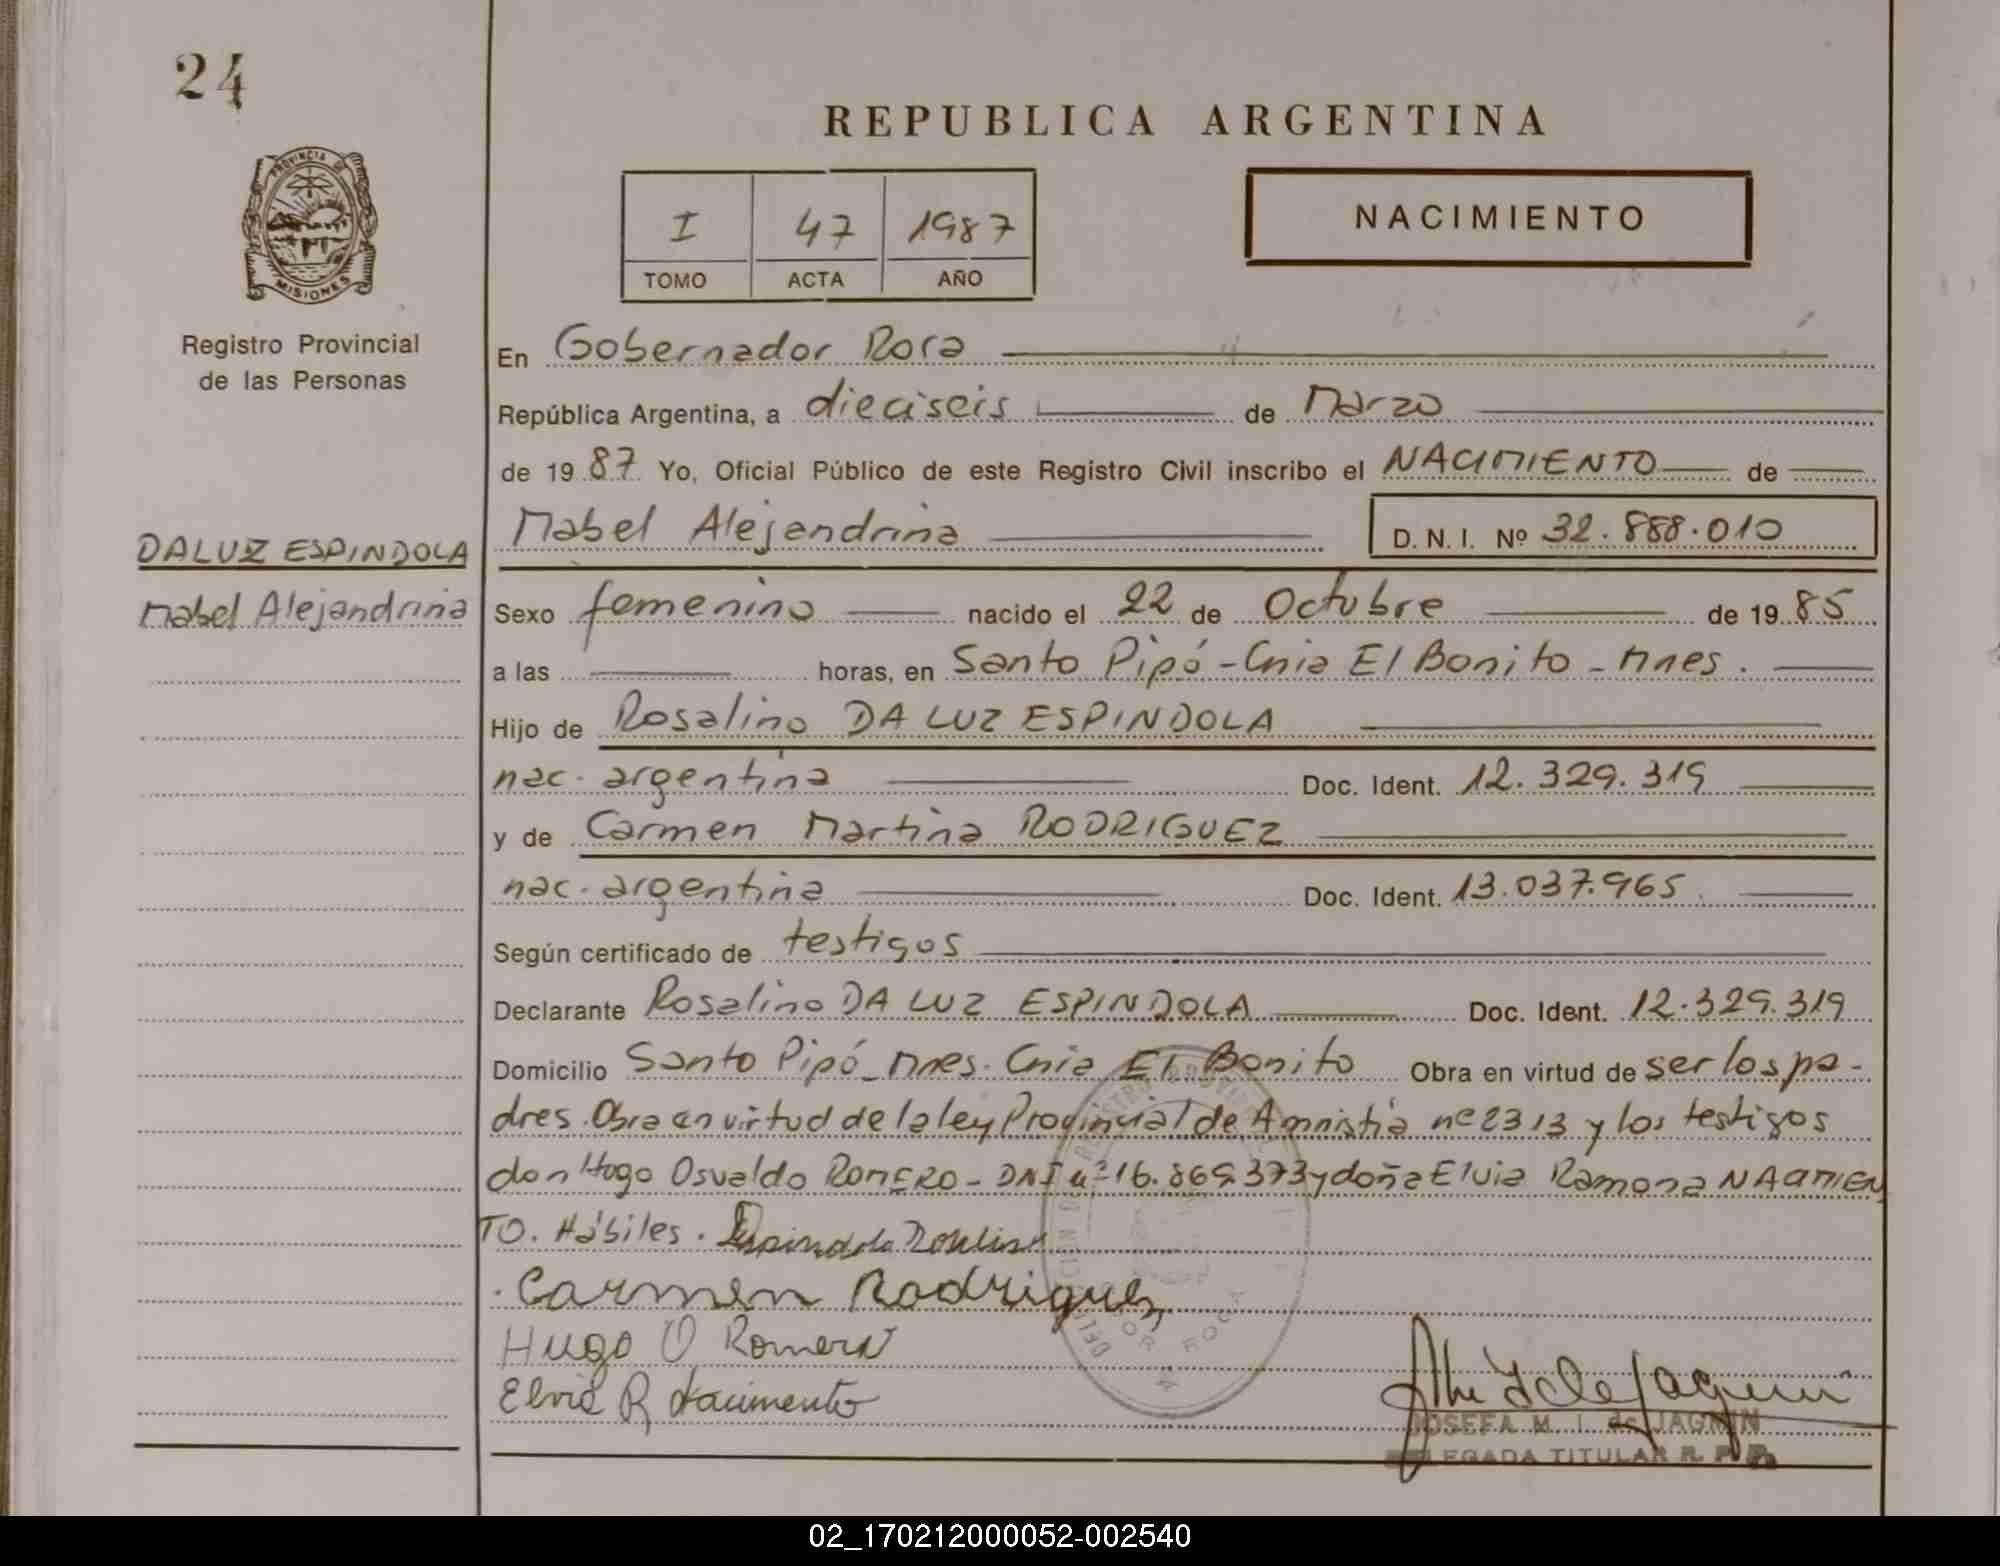 24
REPUBLICA ARGENTINA
PROVINCIA DE
MISIONES
I 47 1987
TOMO ACTA AÑO
NACIMIENTO
Registro Provincial
de las Personas
En Gobernador Roca
República Argentina, a dieciseis de Marzo
de 1987 Yo, Oficial Público de este Registro Civil inscribo el NACIMIENTO de
Mabel Alejandrina D. N. I. Nº 32.888.010
DA LUZ ESPINDOLA
Mabel Alejandrina
Sexo femenino nacido el 22 de Octubre de 1985
a las horas, en Santo Pipó - Cnia El Bonito - Mnes.
Hijo de Rosalino DA LUZ ESPINDOLA
nac. argentina Doc. Ident. 12.329.319
y de Carmen Martina RODRIGUEZ
nac. argentina Doc. Ident. 13.037.965
Según certificado de testigos
Declarante Rosalino DA LUZ ESPINDOLA Doc. Ident. 12.329.319
Domicilio Santo Pipó - Mnes. Cnia El Bonito Obra en virtud de ser los pa-
dres. Obra en virtud de la ley Provincial de Amnistia nº 2313 y los testigos
don Hugo Osvaldo ROMERO - DNI nº 16.869.373 y doña Elvia Ramona NACIMIEN
TO. Hábiles. Espindola Rosalino
Carmen Rodriguez
Hugo O Romero
Elvia R Nacimento
JOSEFA M. I. de JAGNIN
DELEGADA TITULAR R. P. P.
02_170212000052-002540